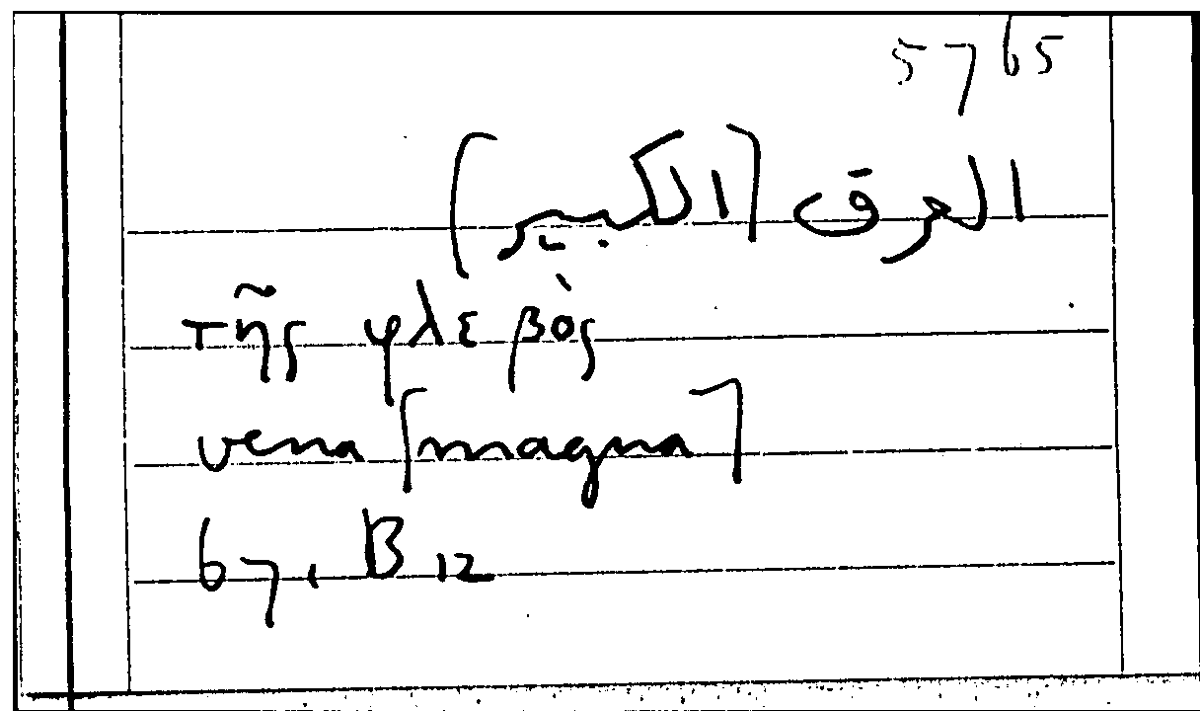 5765
العرق [الكبير]
τῆς φλεβὸς
vena [magna]
67, B 12